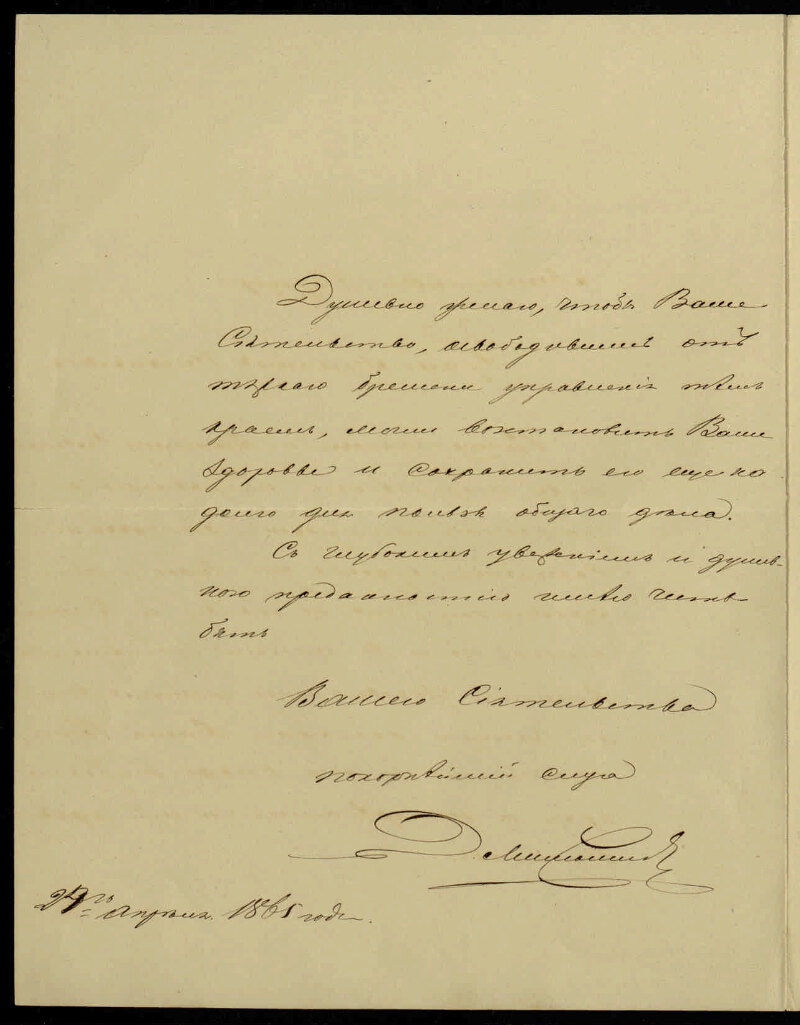 Душевно желаю, чтобъ Ваше
Сіятельство, освободившись отъ
тяжкаго бремени управленія тѣмъ
краемъ, могли возстановить Ваше
здоровье и сохранить его еще на
долго для пользы общаго дѣла.
Съ глубокимъ уваженіемъ и душев-
ною преданностію имѣю честь
быть
Вашего Сіятельства
покорнѣйшій слуга
Д. Милютинъ
Апрѣля 1865 года.